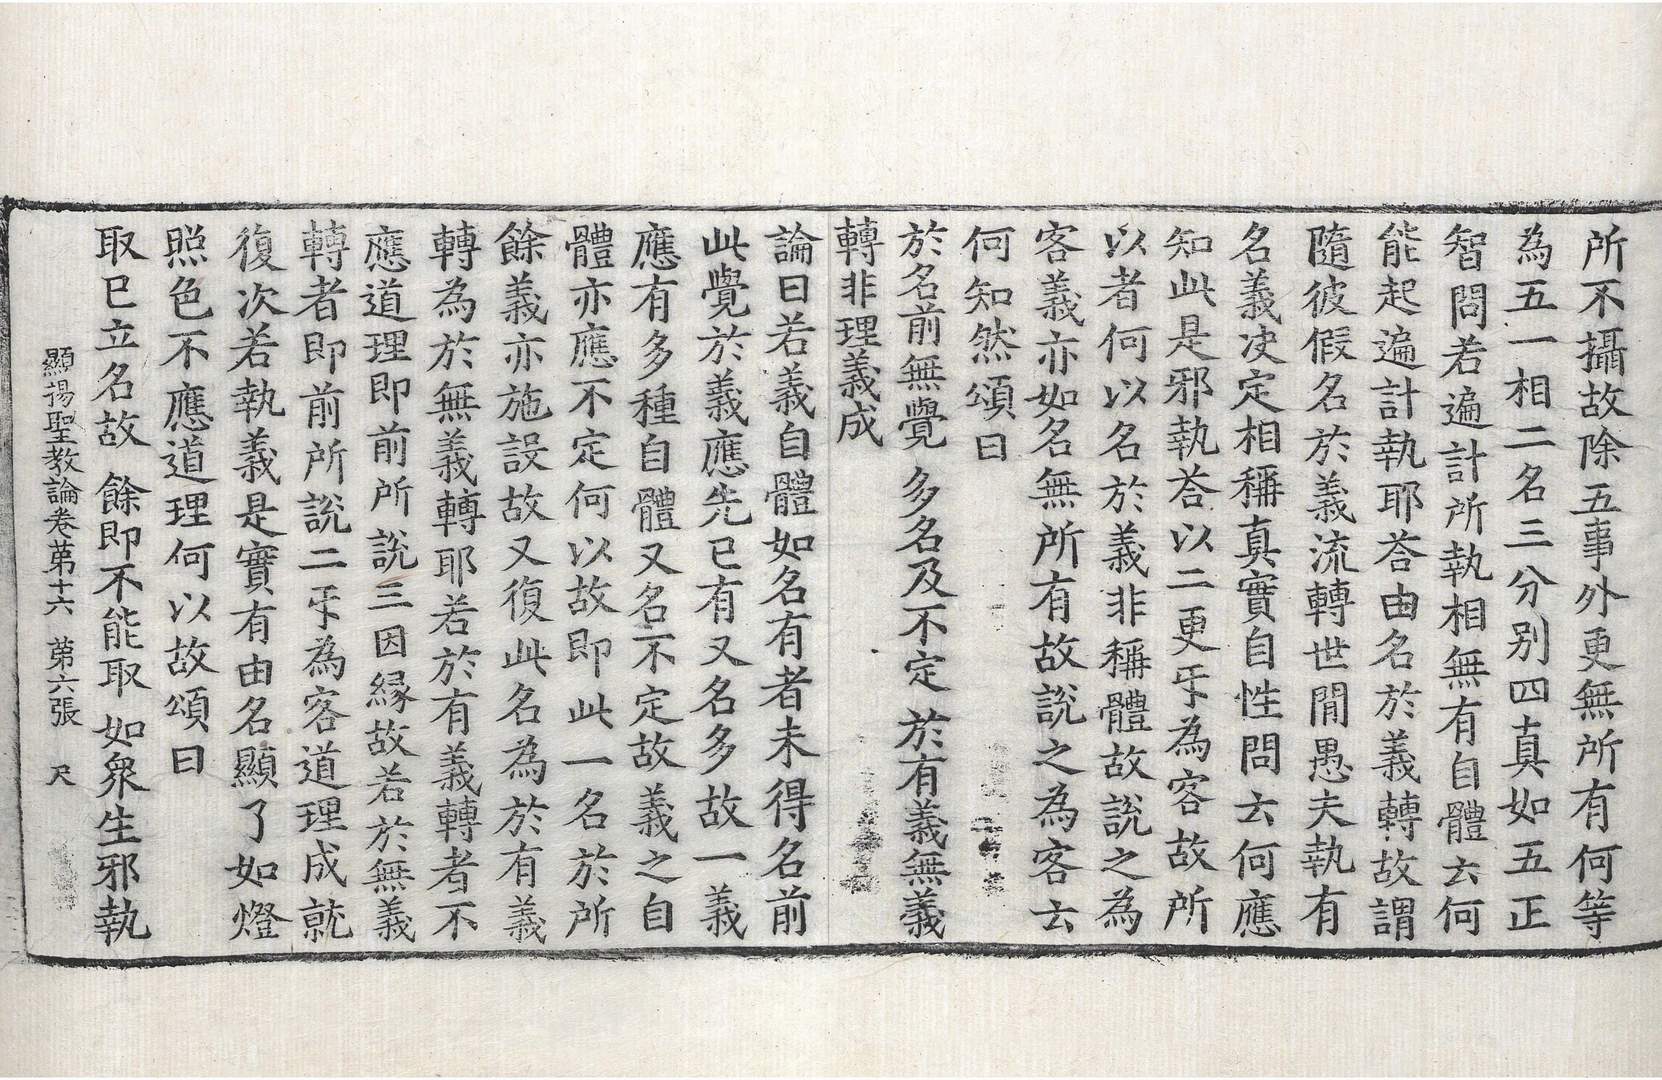 所不攝故除五事外更無所有何等
為五一相二名三分别四真如五正
智問若遍計所執相無有自體云何
能起遍計執耶荅由名於義轉故謂
隨彼假名於義流轉世間愚夫執有
名義决定相稱真實自性問云何應
知此是邪執荅以二更㸦為客故所
以者何以名於義非稱體故說之為
客義亦如名無所有故說之為客云
何知然頌曰
於名前無覺 多名及不定 於有義無義
轉非理義成
論曰若義自體如名有者未得名前
此覺於義應先已有又名多故一義
應有多種自體又名不定故義之自
體亦應不定何以故即此一名於所
餘義亦施設故又復此名為於有義
轉為於無義轉耶若於有義轉者不
應道理即前所說三因緣故若於無義
轉者即前所說二㸦為客道理成就
復次若執義是實有由名顯了如燈
照色不應道理何以故頌曰
取已立名故 餘即不能取 如衆生邪執
顯揚聖教論卷苐十六 苐六張 尺